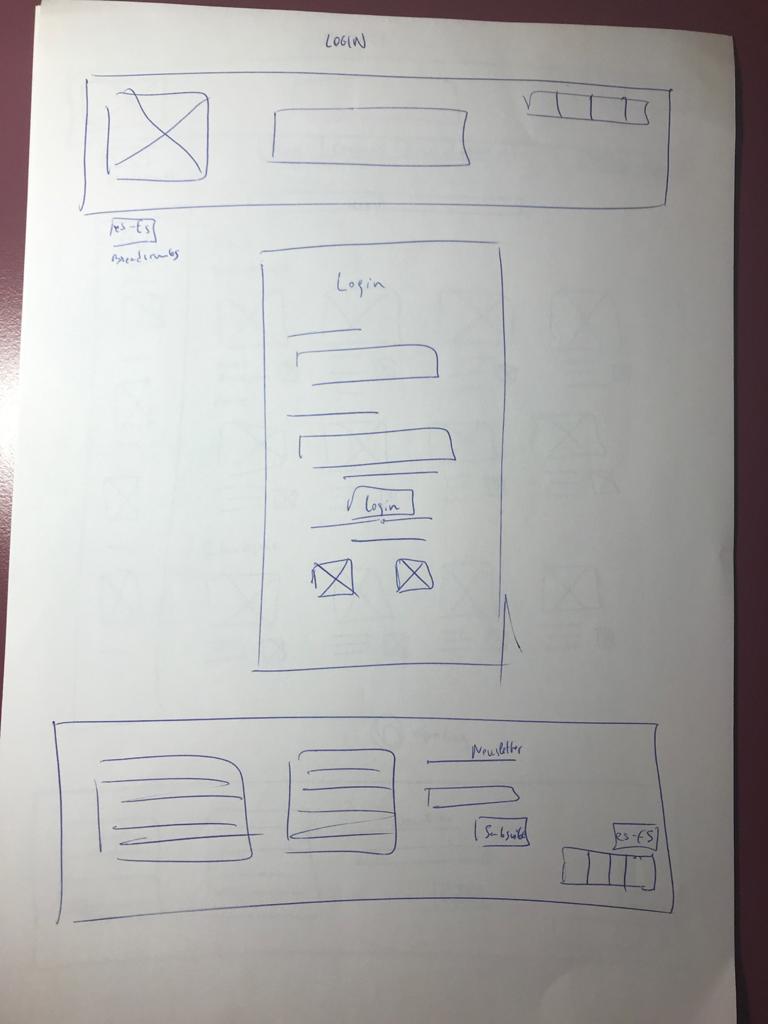 LOGIN
es-ES
Breadcrumbs
Login
Login
Newsletter
Subscribe
es-ES